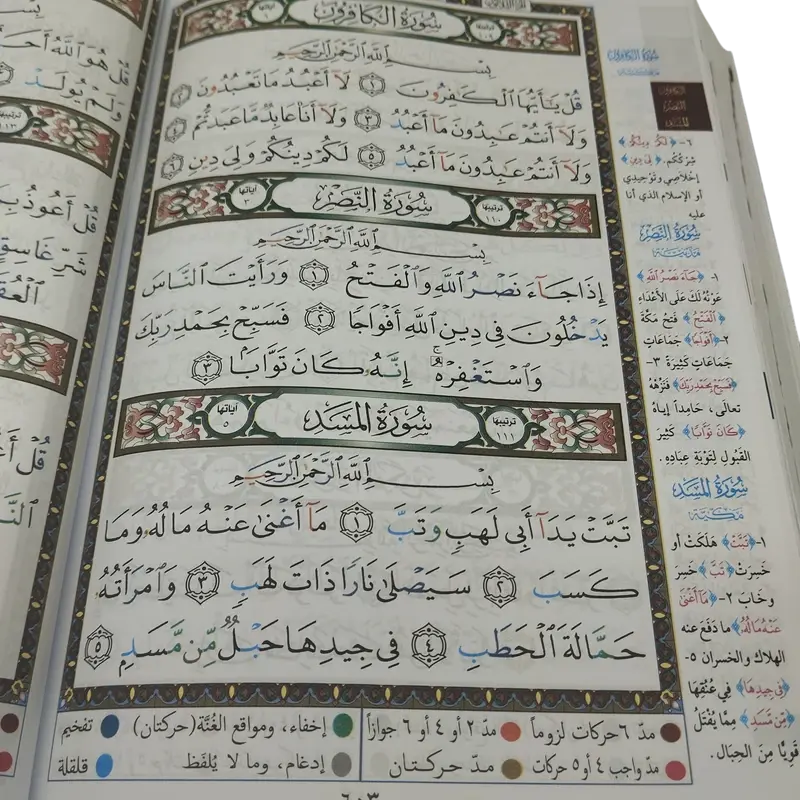 سُورَةُ الكَافِرُونَ
ترتيبها ١٠٩
آياتها ٦
بِسْمِ ٱللَّهِ ٱلرَّحْمَٰنِ ٱلرَّحِيمِ
قُلْ يَٰٓأَيُّهَا ٱلْكَٰفِرُونَ ١ لَآ أَعْبُدُ مَا تَعْبُدُونَ ٢
وَلَآ أَنتُمْ عَٰبِدُونَ مَآ أَعْبُدُ ٣ وَلَآ أَنَا۠ عَابِدٌ مَّا عَبَدتُّمْ ٤
وَلَآ أَنتُمْ عَٰبِدُونَ مَآ أَعْبُدُ ٥ لَكُمْ دِينُكُمْ وَلِىَ دِينِ ٦
سُورَةُ النَّصْرِ
ترتيبها ١١٠
آياتها ٣
بِسْمِ ٱللَّهِ ٱلرَّحْمَٰنِ ٱلرَّحِيمِ
إِذَا جَآءَ نَصْرُ ٱللَّهِ وَٱلْفَتْحُ ١ وَرَأَيْتَ ٱلنَّاسَ
يَدْخُلُونَ فِى دِينِ ٱللَّهِ أَفْوَاجًا ٢ فَسَبِّحْ بِحَمْدِ رَبِّكَ
وَٱسْتَغْفِرْهُ ۚ إِنَّهُۥ كَانَ تَوَّابًۢا ٣
سُورَةُ المَسَدِ
ترتيبها ١١١
آياتها ٥
بِسْمِ ٱللَّهِ ٱلرَّحْمَٰنِ ٱلرَّحِيمِ
تَبَّتْ يَدَآ أَبِى لَهَبٍ وَتَبَّ ١ مَآ أَغْنَىٰ عَنْهُ مَالُهُۥ وَمَا
كَسَبَ ٢ سَيَصْلَىٰ نَارًا ذَاتَ لَهَبٍ ٣ وَٱمْرَأَتُهُۥ
حَمَّالَةَ ٱلْحَطَبِ ٤ فِى جِيدِهَا حَبْلٌ مِّن مَّسَدٍۭ ٥
سُورَةُ الكَافِرُونَ
الكافرون
النصر
المسد
٦- ﴿لَكُمْ دِينُكُمْ﴾
شِرْكُكُم. ﴿وَلِيَ دِينِ﴾
إخْلَاصِي وَتَوْحِيدِي
أو الإسلام الذي أنا
عليه
سُورَةُ النَّصْرِ
مَدَنِيَّة
١- ﴿جَآءَ نَصْرُ اللَّهِ﴾
عَوْنُهُ لَكَ عَلَى الأَعْدَاءِ
﴿الْفَتْحُ﴾ فَتْحُ مَكَّةَ
٢- ﴿أَفْوَاجًا﴾ جَمَاعَاتٍ
جَمَاعَاتٍ كَثِيرَةً ٣-
﴿فَسَبِّحْ بِحَمْدِ رَبِّكَ﴾ فَنَزِّهْهُ
تعالى، حَامِداً إياهُ
﴿كَانَ تَوَّابًا﴾ كَثِيرَ
القَبُولِ لِتَوْبَةِ عِبَادِهِ.
سُورَةُ المَسَدِ
مَكِّيَّة
١- ﴿تَبَّتْ﴾ هَلَكَتْ أو
خَسِرَتْ ﴿تَبَّ﴾ خَسِرَ
وخَابَ ٢- ﴿مَا أَغْنَىٰ
عَنْهُ مَالُهُ﴾ ما دَفَعَ عنه
الهلاك والخسران ٥-
﴿فِي جِيدِهَا﴾ في عُنُقِهَا
﴿مِن مَّسَدٍ﴾ مِمَّا يُفْتَلُ
قَوِيًّا مِنَ الحِبَال.
مدّ ٦ حركات لزوماً
مدّ ٢ أو ٤ أو ٦ جوازاً
إخفاء، ومواقع الغُنَّة (حركتان)
تفخيم
مدّ واجب ٤ أو ٥ حركات
مدّ حركتان
إدغام، وما لا يُلفَظ
قلقلة
٦٠٣
قُلْ هُوَ ٱللَّهُ
وَلَمْ يُولَدْ
١١٣
قُلْ أَعُوذُ
شَرِّ غَاسِقٍ